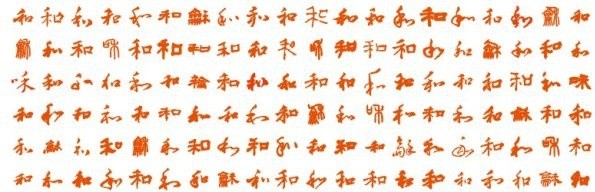 和和和和和和龢和和和和和和和和和和和龢和
龢和和咊龢和和和和和和和和和和和龢和和和
咊和和和和和龢和和和和和和和和和和和和咊
和和和和和和和和和和龢和咊和和和和龢和和
和龢和和龢和和和和和和和和龢和和和和龢和
和和和和和和和龢和和和和和和和和和和龢和